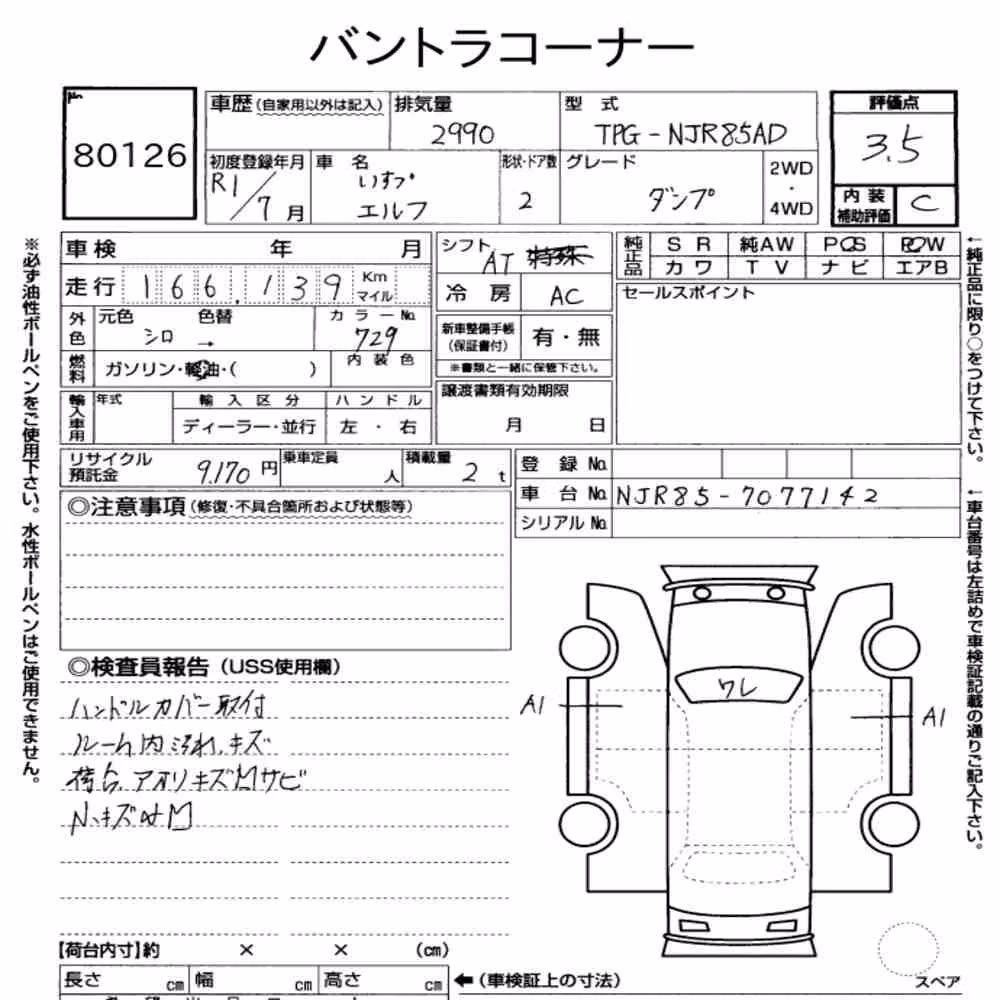 バントラコーナー
80126
車歴(自家用以外は記入)
排気量
2990
型 式
TPG-NJR85AD
評価点
3.5
初度登録年月
R1/7月
車 名
いすゞ
エルフ
形状・ドア数
2
グレード
ダンプ
2WD
・
4WD
内装
補助評価
C
※必ず油性ボールペンをご使用下さい。水性ボールペンはご使用できません。
車検 年 月
走行 166,139 Km
マイル
外色
元色 色替
シロ →
カラーNo.
729
燃料
ガソリン・軽油・( )
内装色
輸入車用
年式
輸入区分
ディーラー・並行
ハンドル
左・右
シフト
AT 特殊
冷房
AC
新車整備手帳
(保証書付)
有・無
※書類と一緒に保管下さい。
譲渡書類有効期限
月 日
純正品
SR 純AW P○S P○W
カワ TV ナビ エアB
セールスポイント
←純正品に限り○をつけて下さい。
リサイクル
預託金
9,170円
乗車定員
人
積載量
2 t
登録No.
車台No. NJR85-7077142
シリアルNo.
←車台番号は左詰めで車検証記載の通りご記入下さい。
◎注意事項(修復・不具合箇所および状態等)
◎検査員報告(USS使用欄)
ハンドルカバー取付
ルーム内汚れ、キズ
荷台、アオリキズ凹サビ
小キズ小凹
ワレ
A1
A1
【荷台内寸】約 × × (cm)
長さ cm 幅 cm 高さ cm
←(車検証上の寸法)
スペア